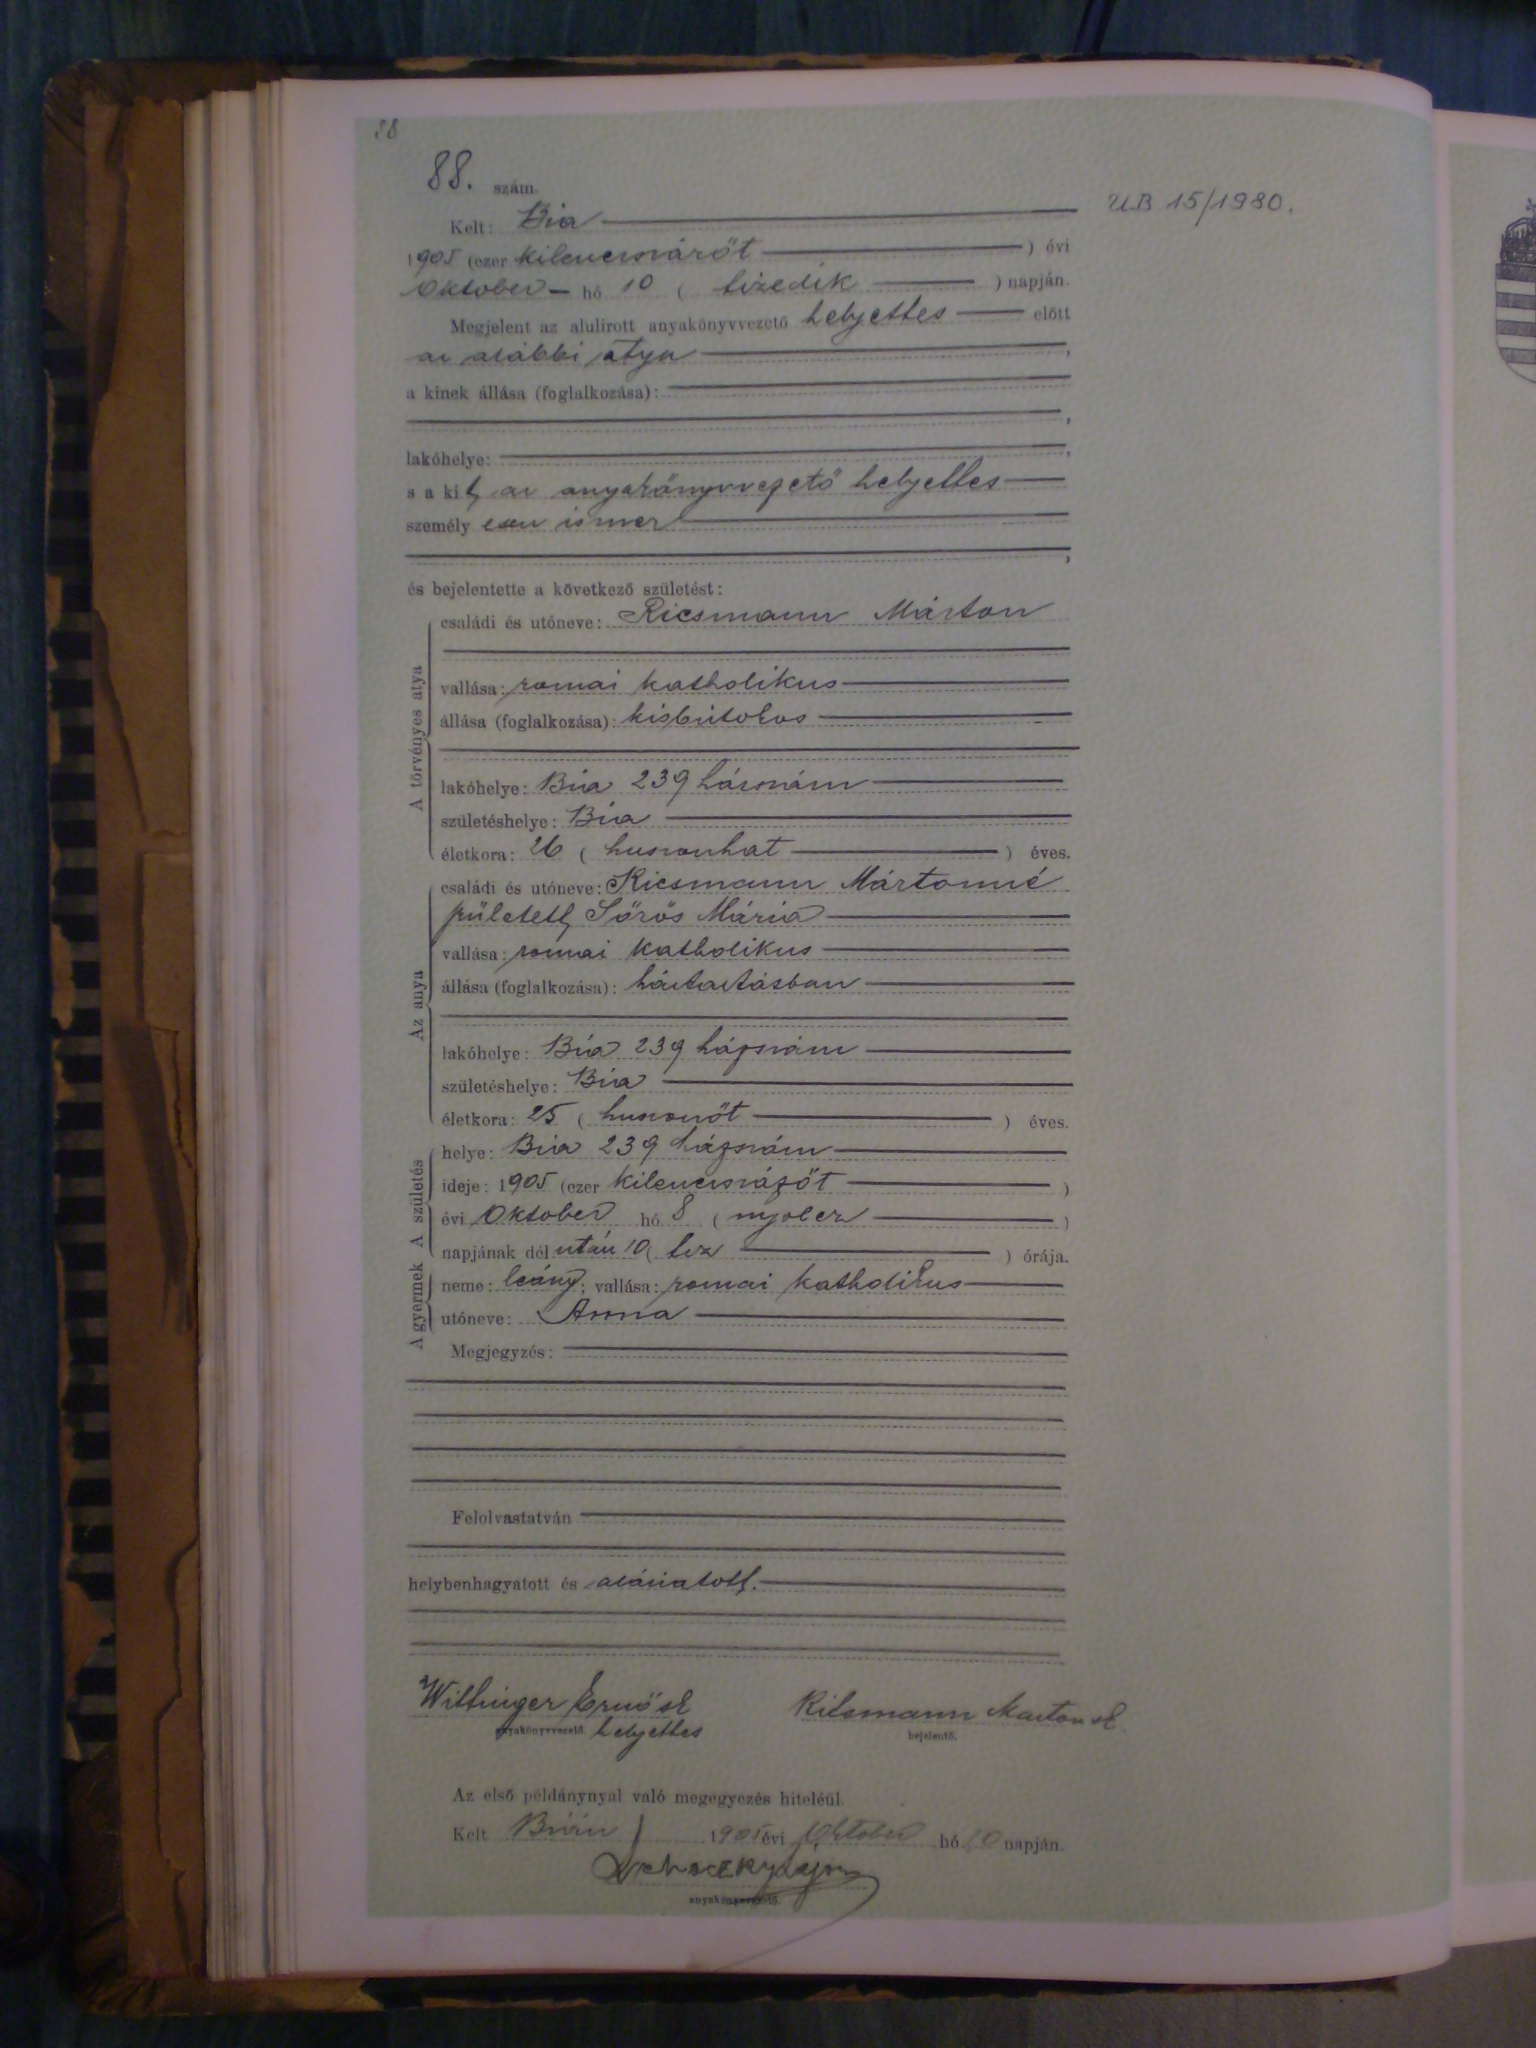 88
88. szám.
UB 15/1980.
Kelt: Bia
1905 (ezer kilenczszázöt ) évi
Október hó 10 ( tizedik ) napján.
Megjelent az alulirott anyakönyvvezető helyettes előtt
az alábbi atya ,
a kinek állása (foglalkozása):
,
lakóhelye: ,
s a kit az anyakönyvvezető helyettes
személyesen ismer
,
és bejelentette a következő születést:
A törvényes atya
családi és utóneve: Ricsmann Márton
vallása: romai katholikus
állása (foglalkozása): kisbirtokos
lakóhelye: Bia 239 házszám
születéshelye: Bia
életkora: 26 ( huszonhat ) éves.
Az anya
családi és utóneve: Ricsmann Mártonné
született Sörös Mária
vallása: romai katholikus
állása (foglalkozása): háztartásban
lakóhelye: Bia 239 házszám
születéshelye: Bia
életkora: 25 ( huszonöt ) éves.
A születés
helye: Bia 239 házszám
ideje: 1905 (ezer kilenczszázöt )
évi Október hó 8 ( nyolcz )
napjának dél után 10 ( tiz ) órája.
A gyermek
neme: leány; vallása: romai katholikus
utóneve: Anna
Megjegyzés:
Felolvastatván
helybenhagyatott és aláiratott.
Wittinger Ernő sk Ricsmann Marton sk
anyakönyvvezető helyettes bejelentő.
Az első példánynyal való megegyezés hiteléül.
Kelt Bián, 1905 évi Október hó 10 napján.
anyakönyvvezető.